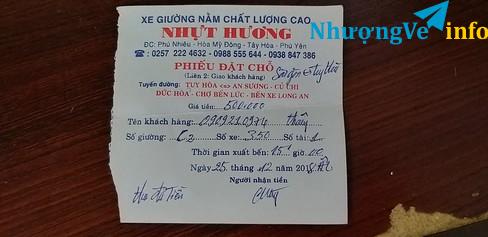 NhượngVé info
XE GIƯỜNG NẰM CHẤT LƯỢNG CAO
NHỰT HƯƠNG
ĐC: Phú Nhiêu - Hòa Mỹ Đông - Tây Hòa - Phú Yên
☎: 0257 222 4632 - 0988 555 644 - 0938 847 386
PHIẾU ĐẶT CHỖ
(Liên 2: Giao khách hàng)
Tuyến đường: TUY HÒA <=> AN SƯƠNG - CỦ CHI
ĐỨC HÒA - CHỢ BẾN LỨC - BẾN XE LONG AN
Giá tiền: 500.000
Tên khách hàng:
Số giường: C2 Số xe: 350 Số tài: 1
Thời gian xuất bến: 15 giờ 00
Ngày 25 tháng 12 năm 2018
Người nhận tiền